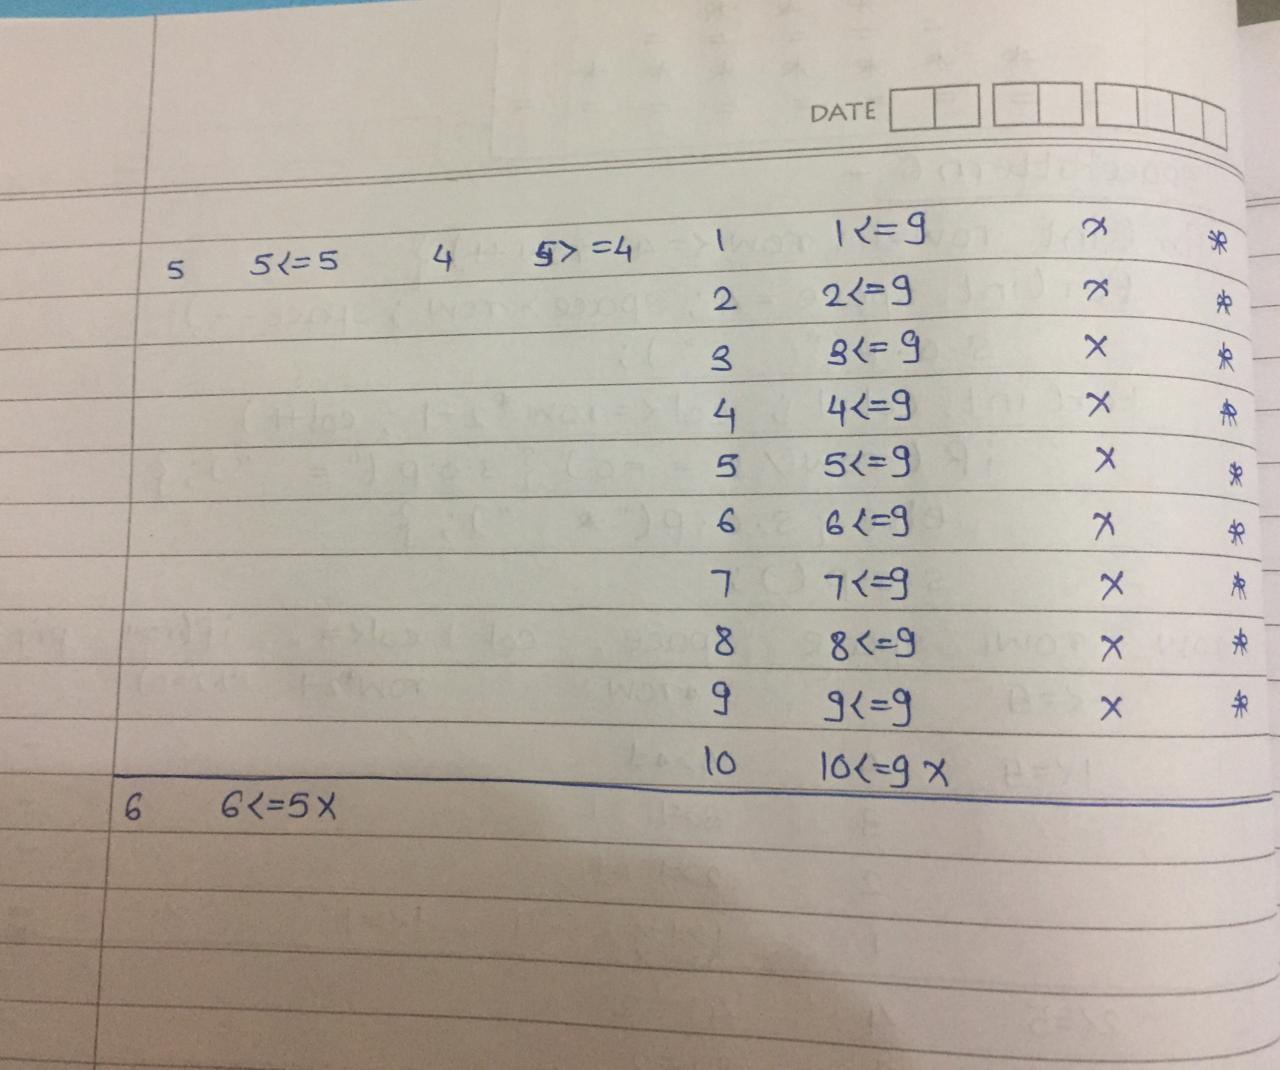 DATE
5 5<=5 4 5>=4 1 1<=9 x *
2 2<=9 x *
3 3<=9 x *
4 4<=9 x *
5 5<=9 x *
6 6<=9 x *
7 7<=9 x *
8 8<=9 x *
9 9<=9 x *
10 10<=9 x
6 6<=5 x